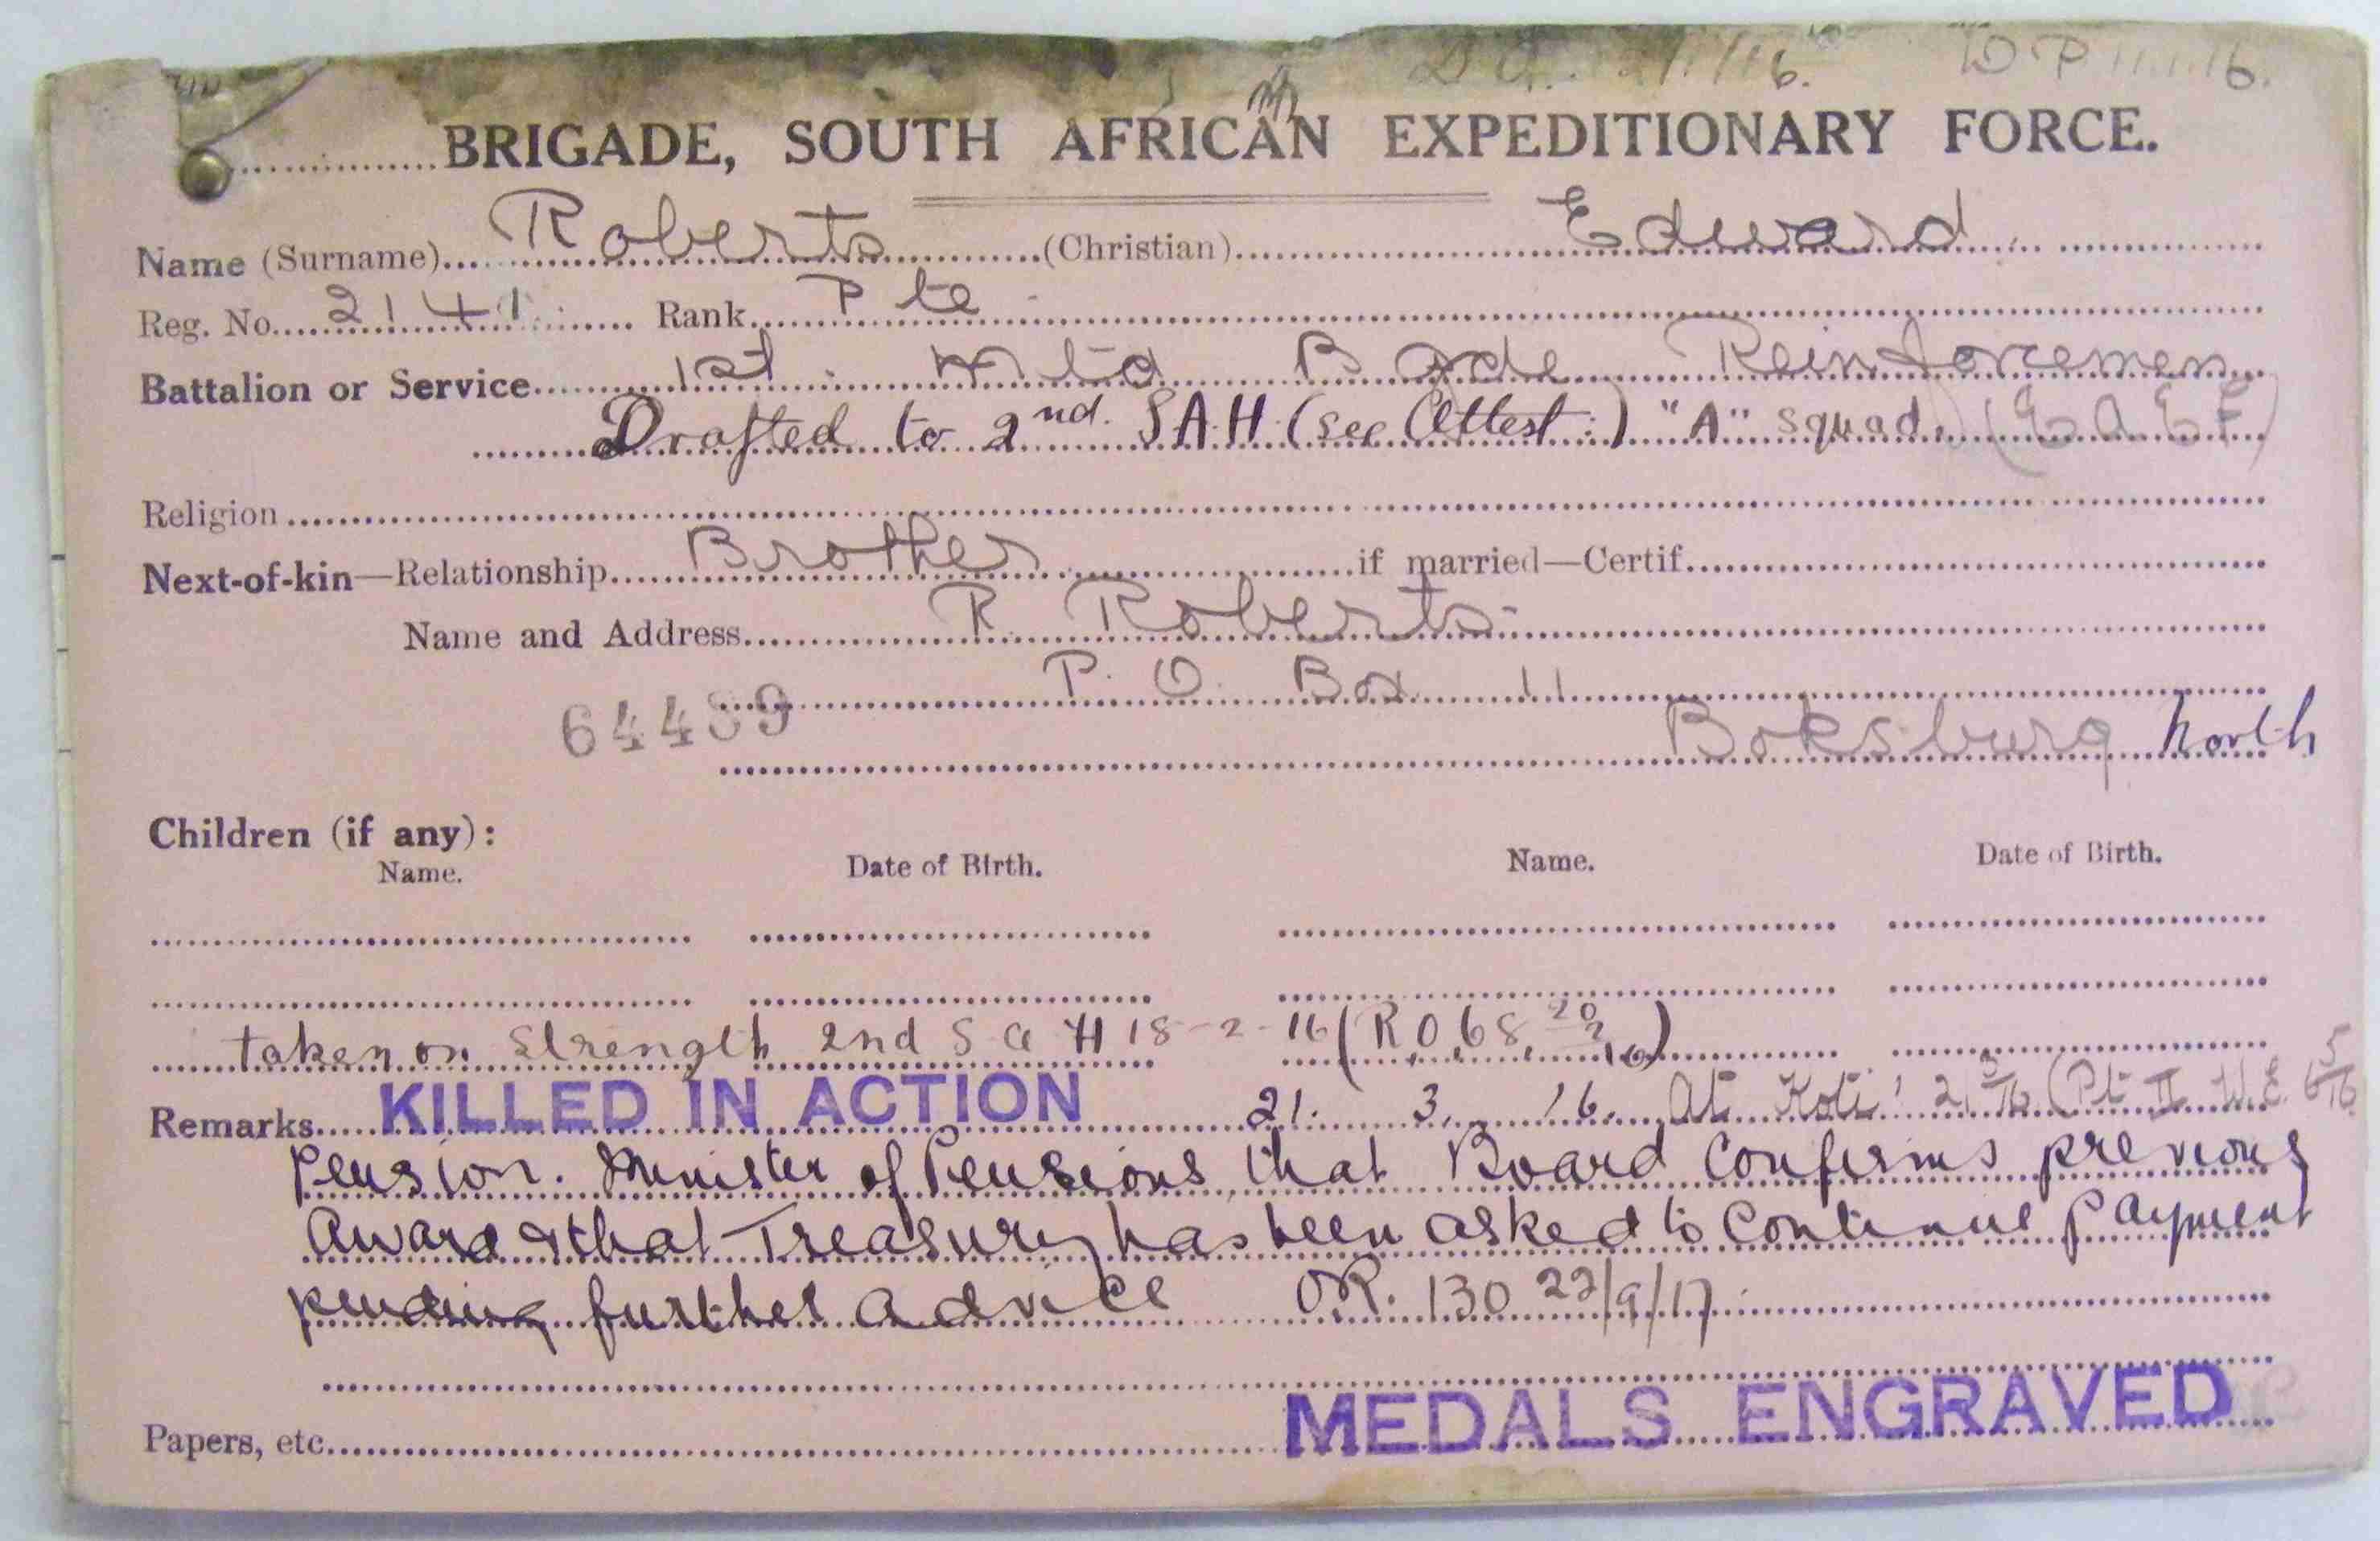 D.O. 2/1/16. D P 11.1.16.
BRIGADE, SOUTH AFRICAN EXPEDITIONARY FORCE.
Name (Surname) Roberts (Christian) Edward
Reg. No. 2141 Rank Pte
Battalion or Service 1st Mtd Bgde Reinforcemen
Drafted to 2nd. S.A.H (see Attest:) "A" squad. (E A E F)
Religion
Next-of-kin—Relationship Brother if married—Certif.
Name and Address R. Roberts
P. O. Box 11
64489
Boksburg North
Children (if any):
Name. Date of Birth. Name. Date of Birth.
taken on Strength 2nd S A H 18-2-16 (R O 68 20/2/16)
Remarks KILLED IN ACTION 21. 3. 16. At Koti! 21 3/16 (Pt II W.E. 6 5/16
Pension. Minister of Pensions that Board Confirms previous
Award & that Treasury has been asked to Continue payment
pending further advice OR. 130 22/9/17
MEDALS ENGRAVED
Papers, etc.